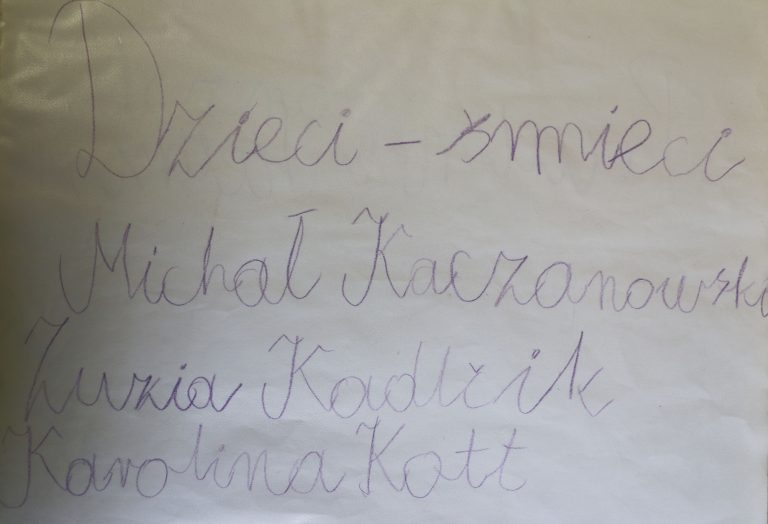 Dzieci - śmieci
Michał Kaczanowski
Zuzia Kadlzik
Karolina Kott